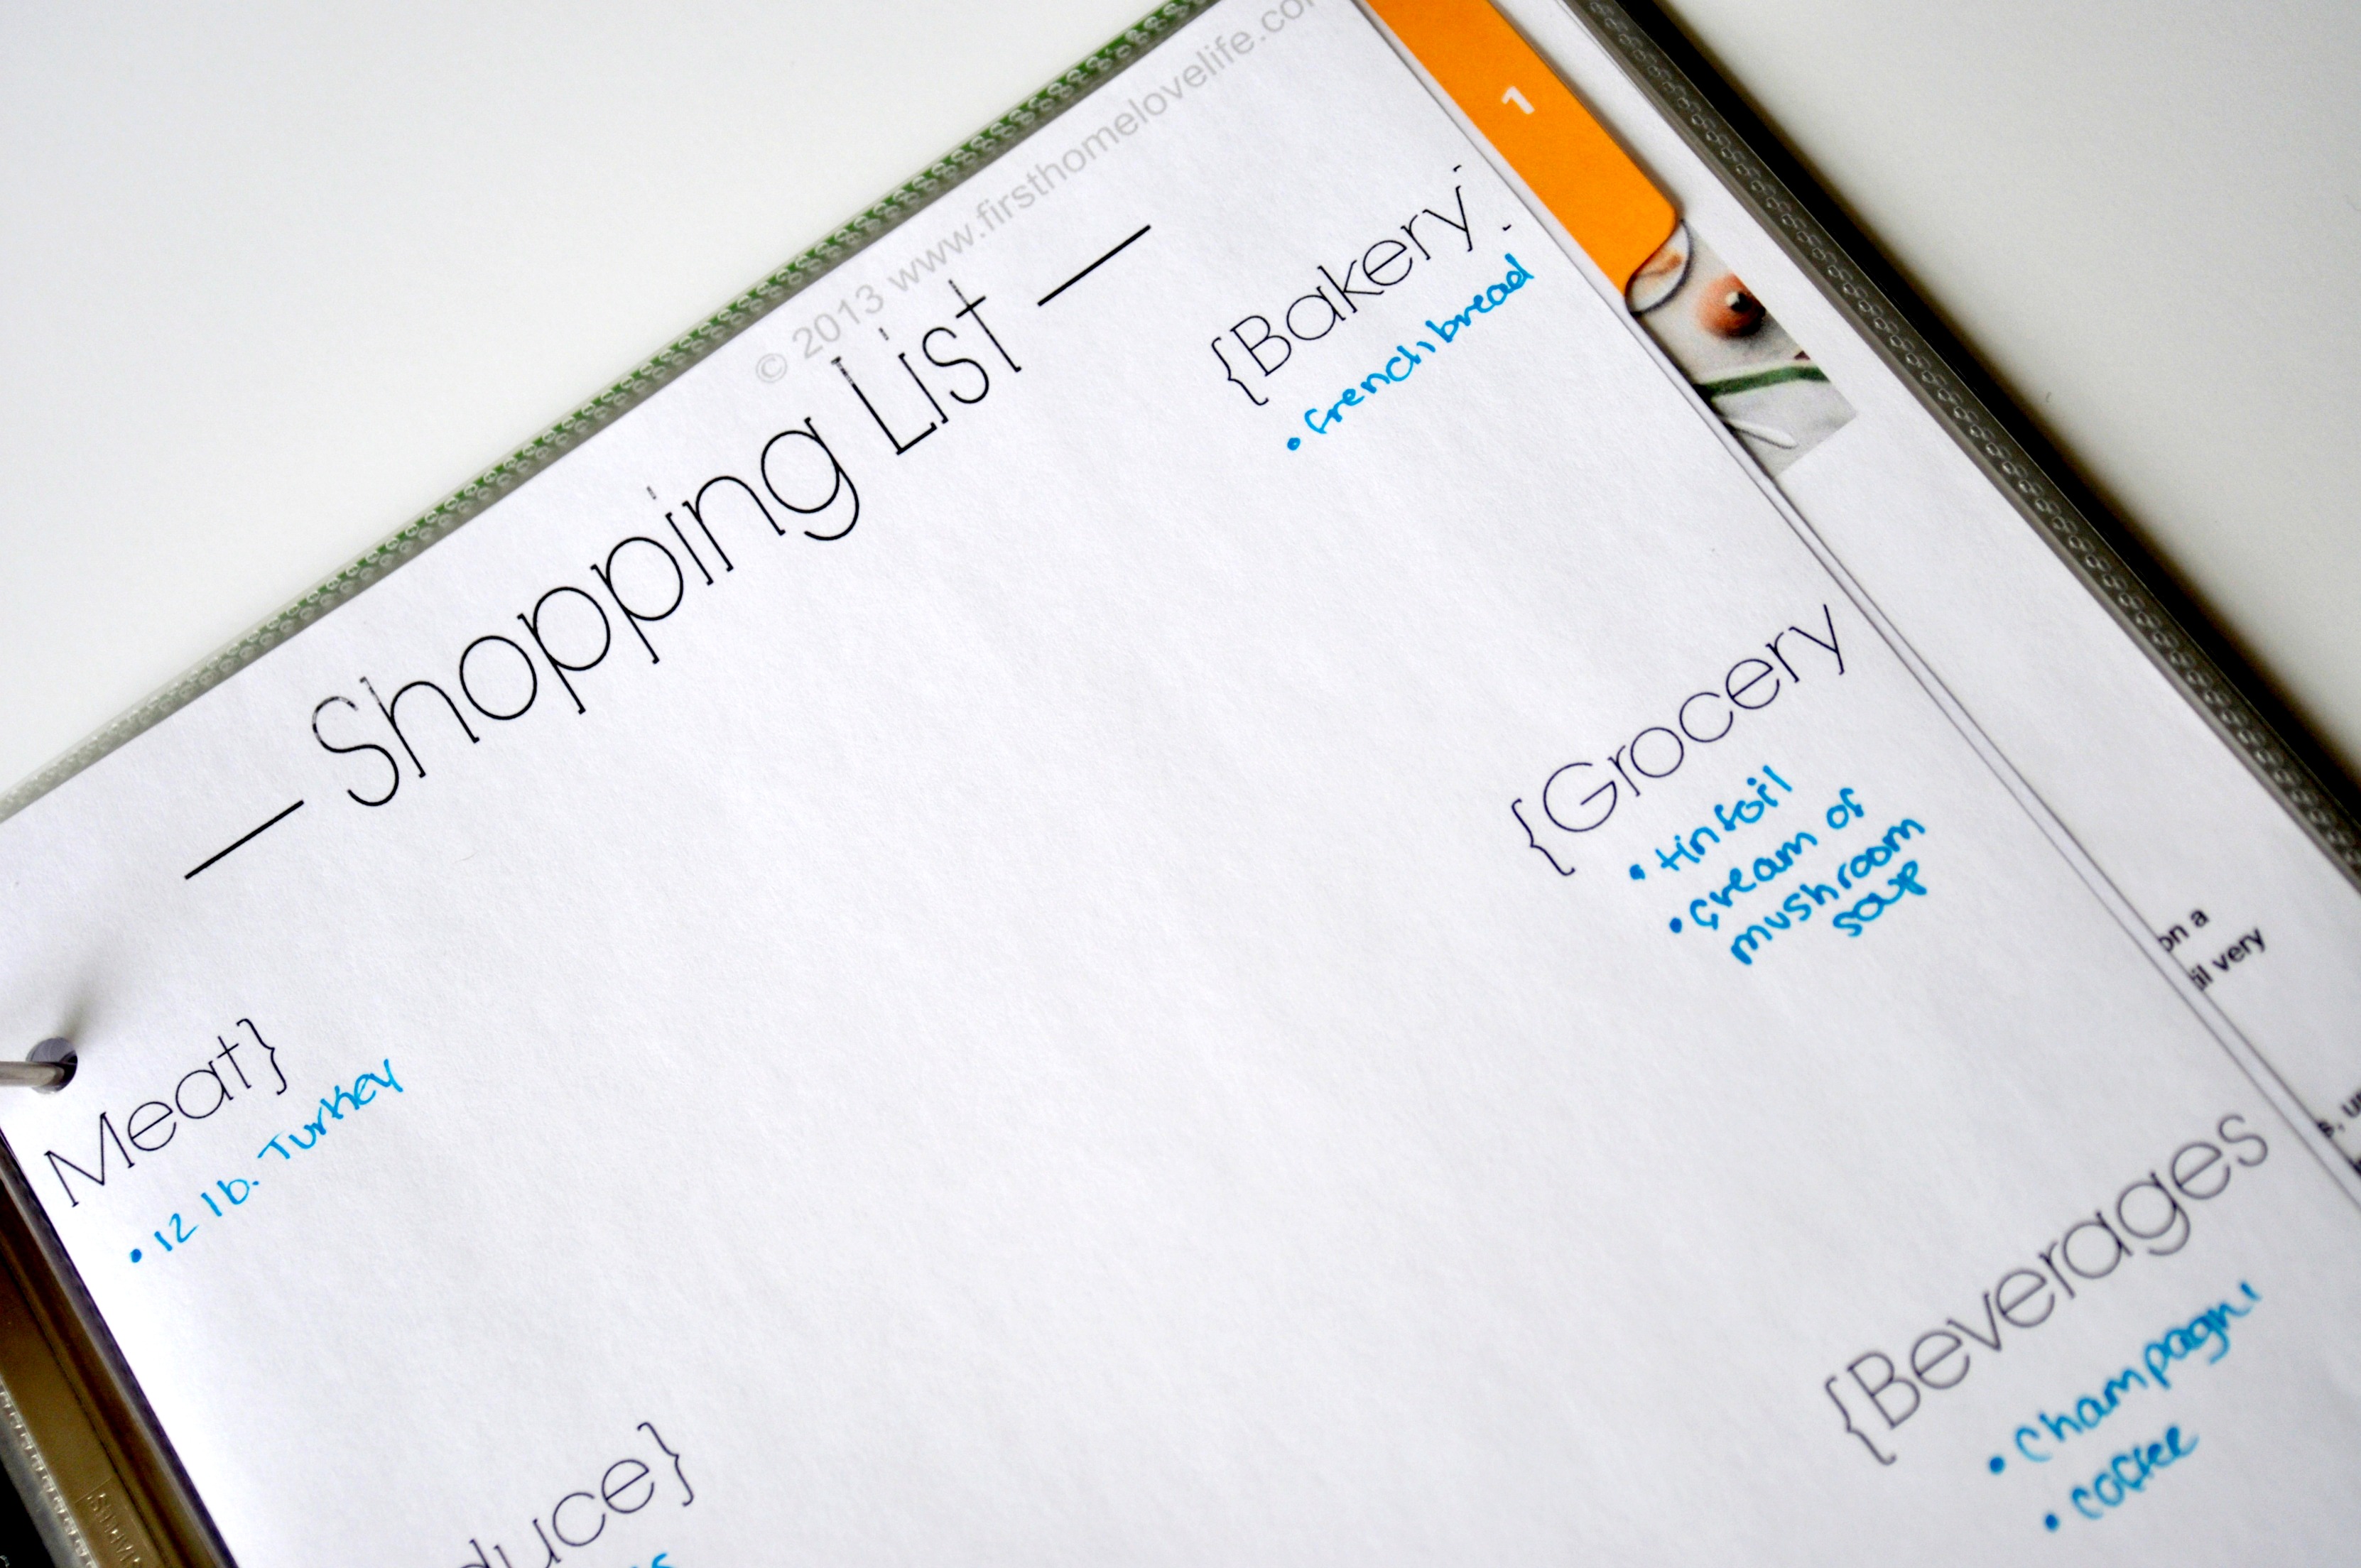 © 2013 www.firsthomelovelife.co
— Shopping List —
{Bakery
• french bread
{Grocery
• tinfoil
• cream of
mushroom
soup
Meat}
• 12 lb. Turkey
{Beverages
• Champagne
• coffee
duce}
1
on a
il very